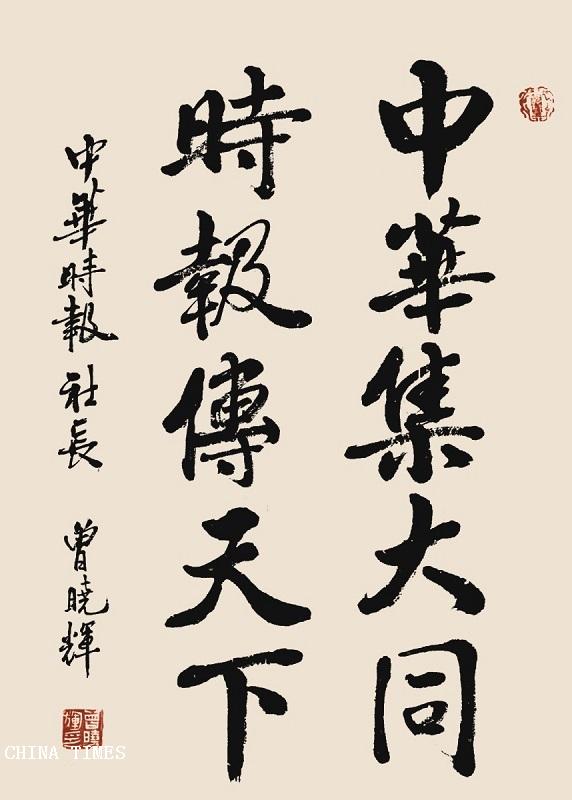 中華集大同
時報傳天下
中華時報 社長 曾曉輝
曾曉輝印
CHINA TIMES